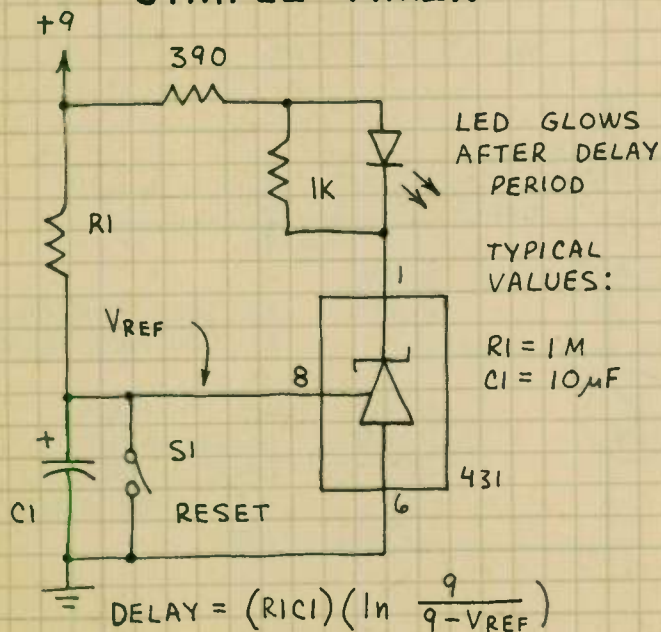 +9
390
LED GLOWS
AFTER DELAY
PERIOD
1K
R1
TYPICAL
VALUES:
1
VREF
R1 = 1M
C1 = 10µF
8
+
S1
431
C1
RESET
6
DELAY = (R1C1)(ln 9/9-VREF)